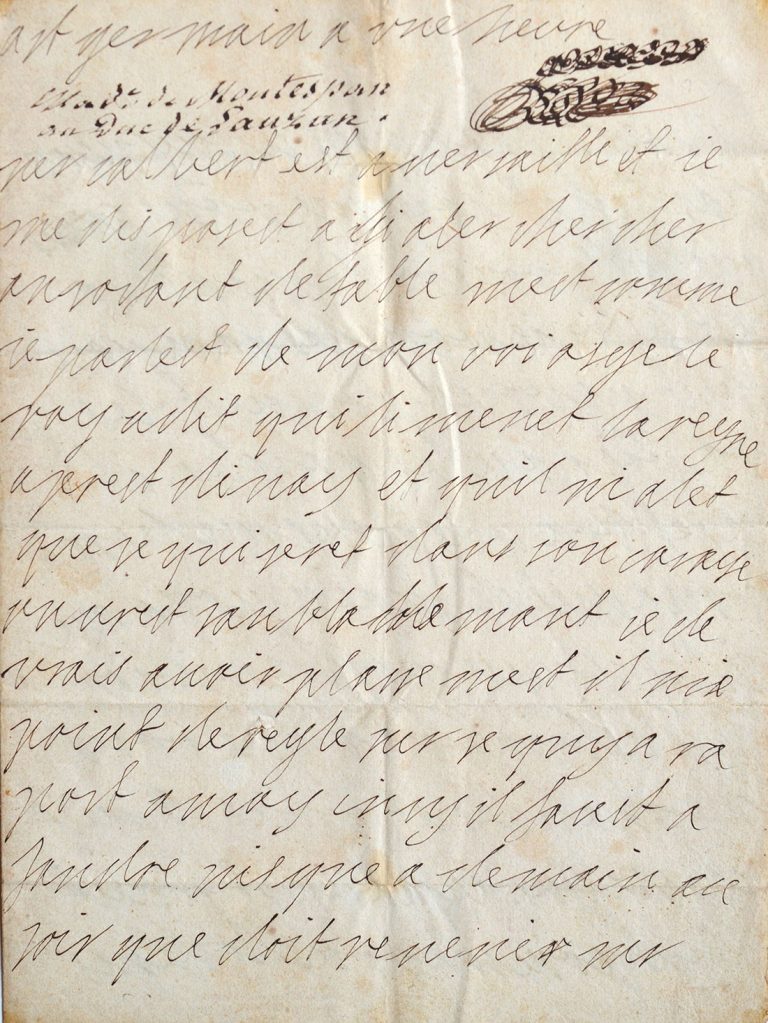 a st germain a vne heure
Made de Montespan
au Duc de Lauzun.
mr colbert est a versaille et ie
me disposest a li aler chercher
an sortant de table mest comme
ie parlest de mon voiasge le
roy a dit qui li menet la reyne
aprest dinay et quil ni alet
que se qui seret dans son carosse
ouurest sanblablemant ie de
vrais auoir plasse mest il nia
point de reyle sur se quy a ra
port a moy insy il faust a
tandre iusque a demain au
soir que doit reuenir mr